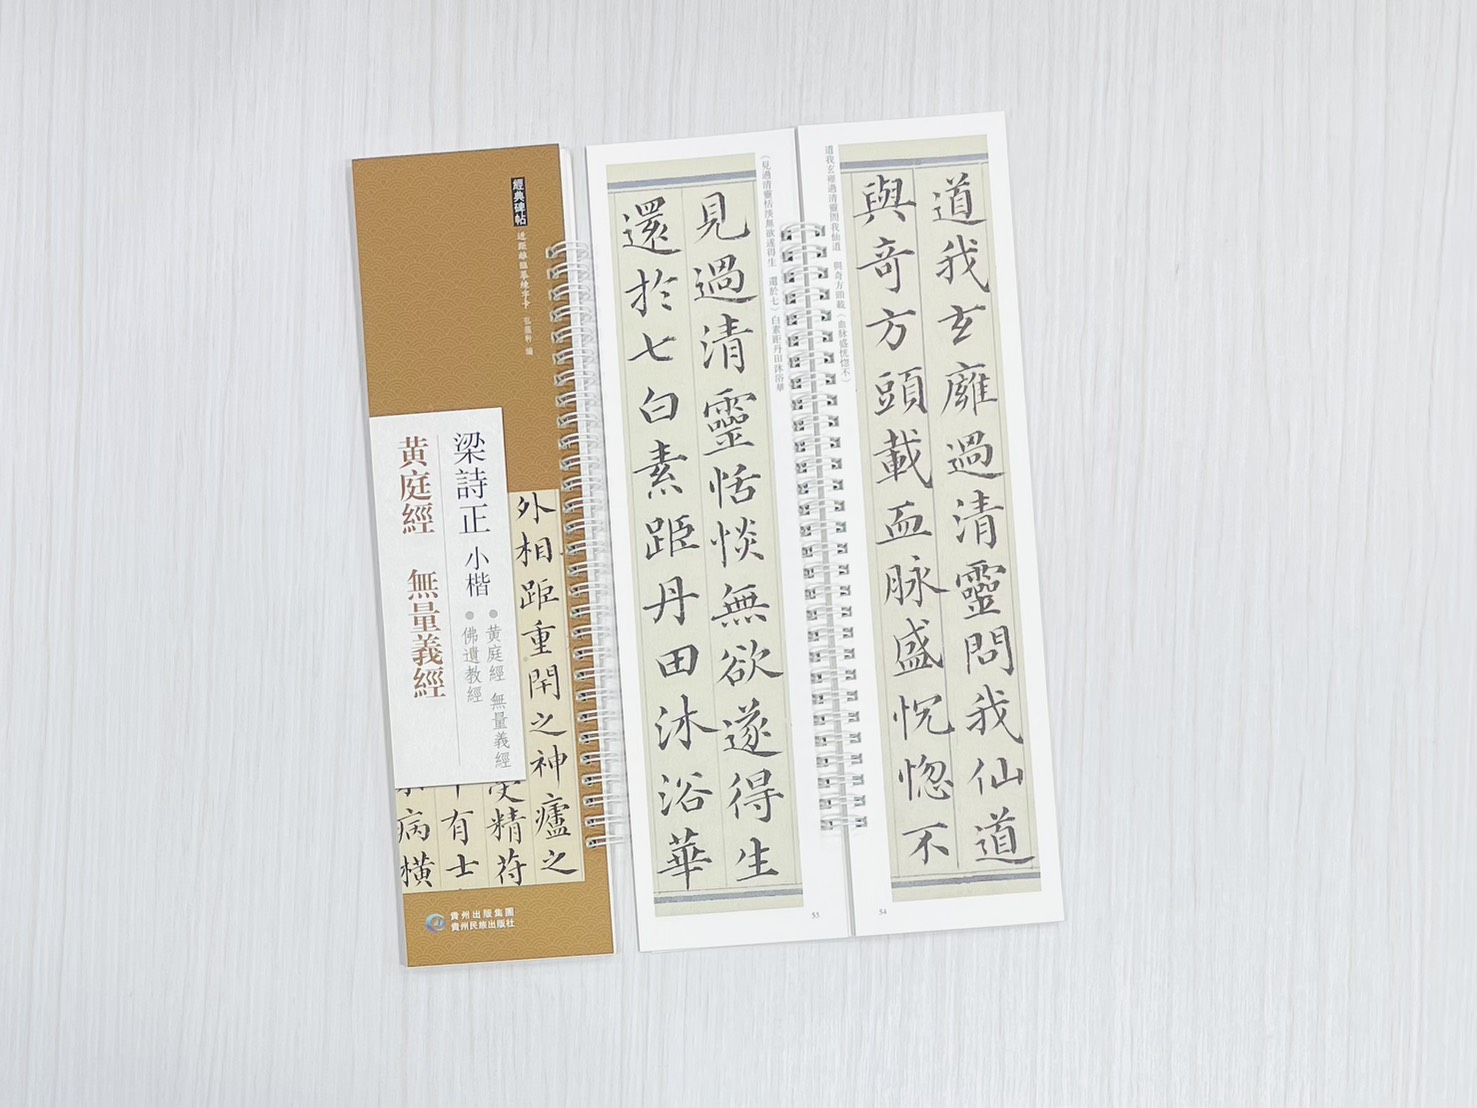 經典碑帖
近距離臨摹練字卡 弘蘊軒 編
梁詩正 小楷
● 黃庭經 無量義經
● 佛遺教經
黃庭經 無量義經
外相距重閇之神廬之
使精苻
有士
病橫
貴州出版集團
貴州民族出版社
(見過清靈恬淡無欲遂得生 還於七)白素距丹田沐浴華
見過清靈恬惔無欲遂得生
還於七白素距丹田沐浴華
53
道我玄雍過清靈問我仙道 與奇方頭載(血脉盛恍惚不)
道我玄廱過清靈問我仙道
與奇方頭載血脉盛怳惚不
54